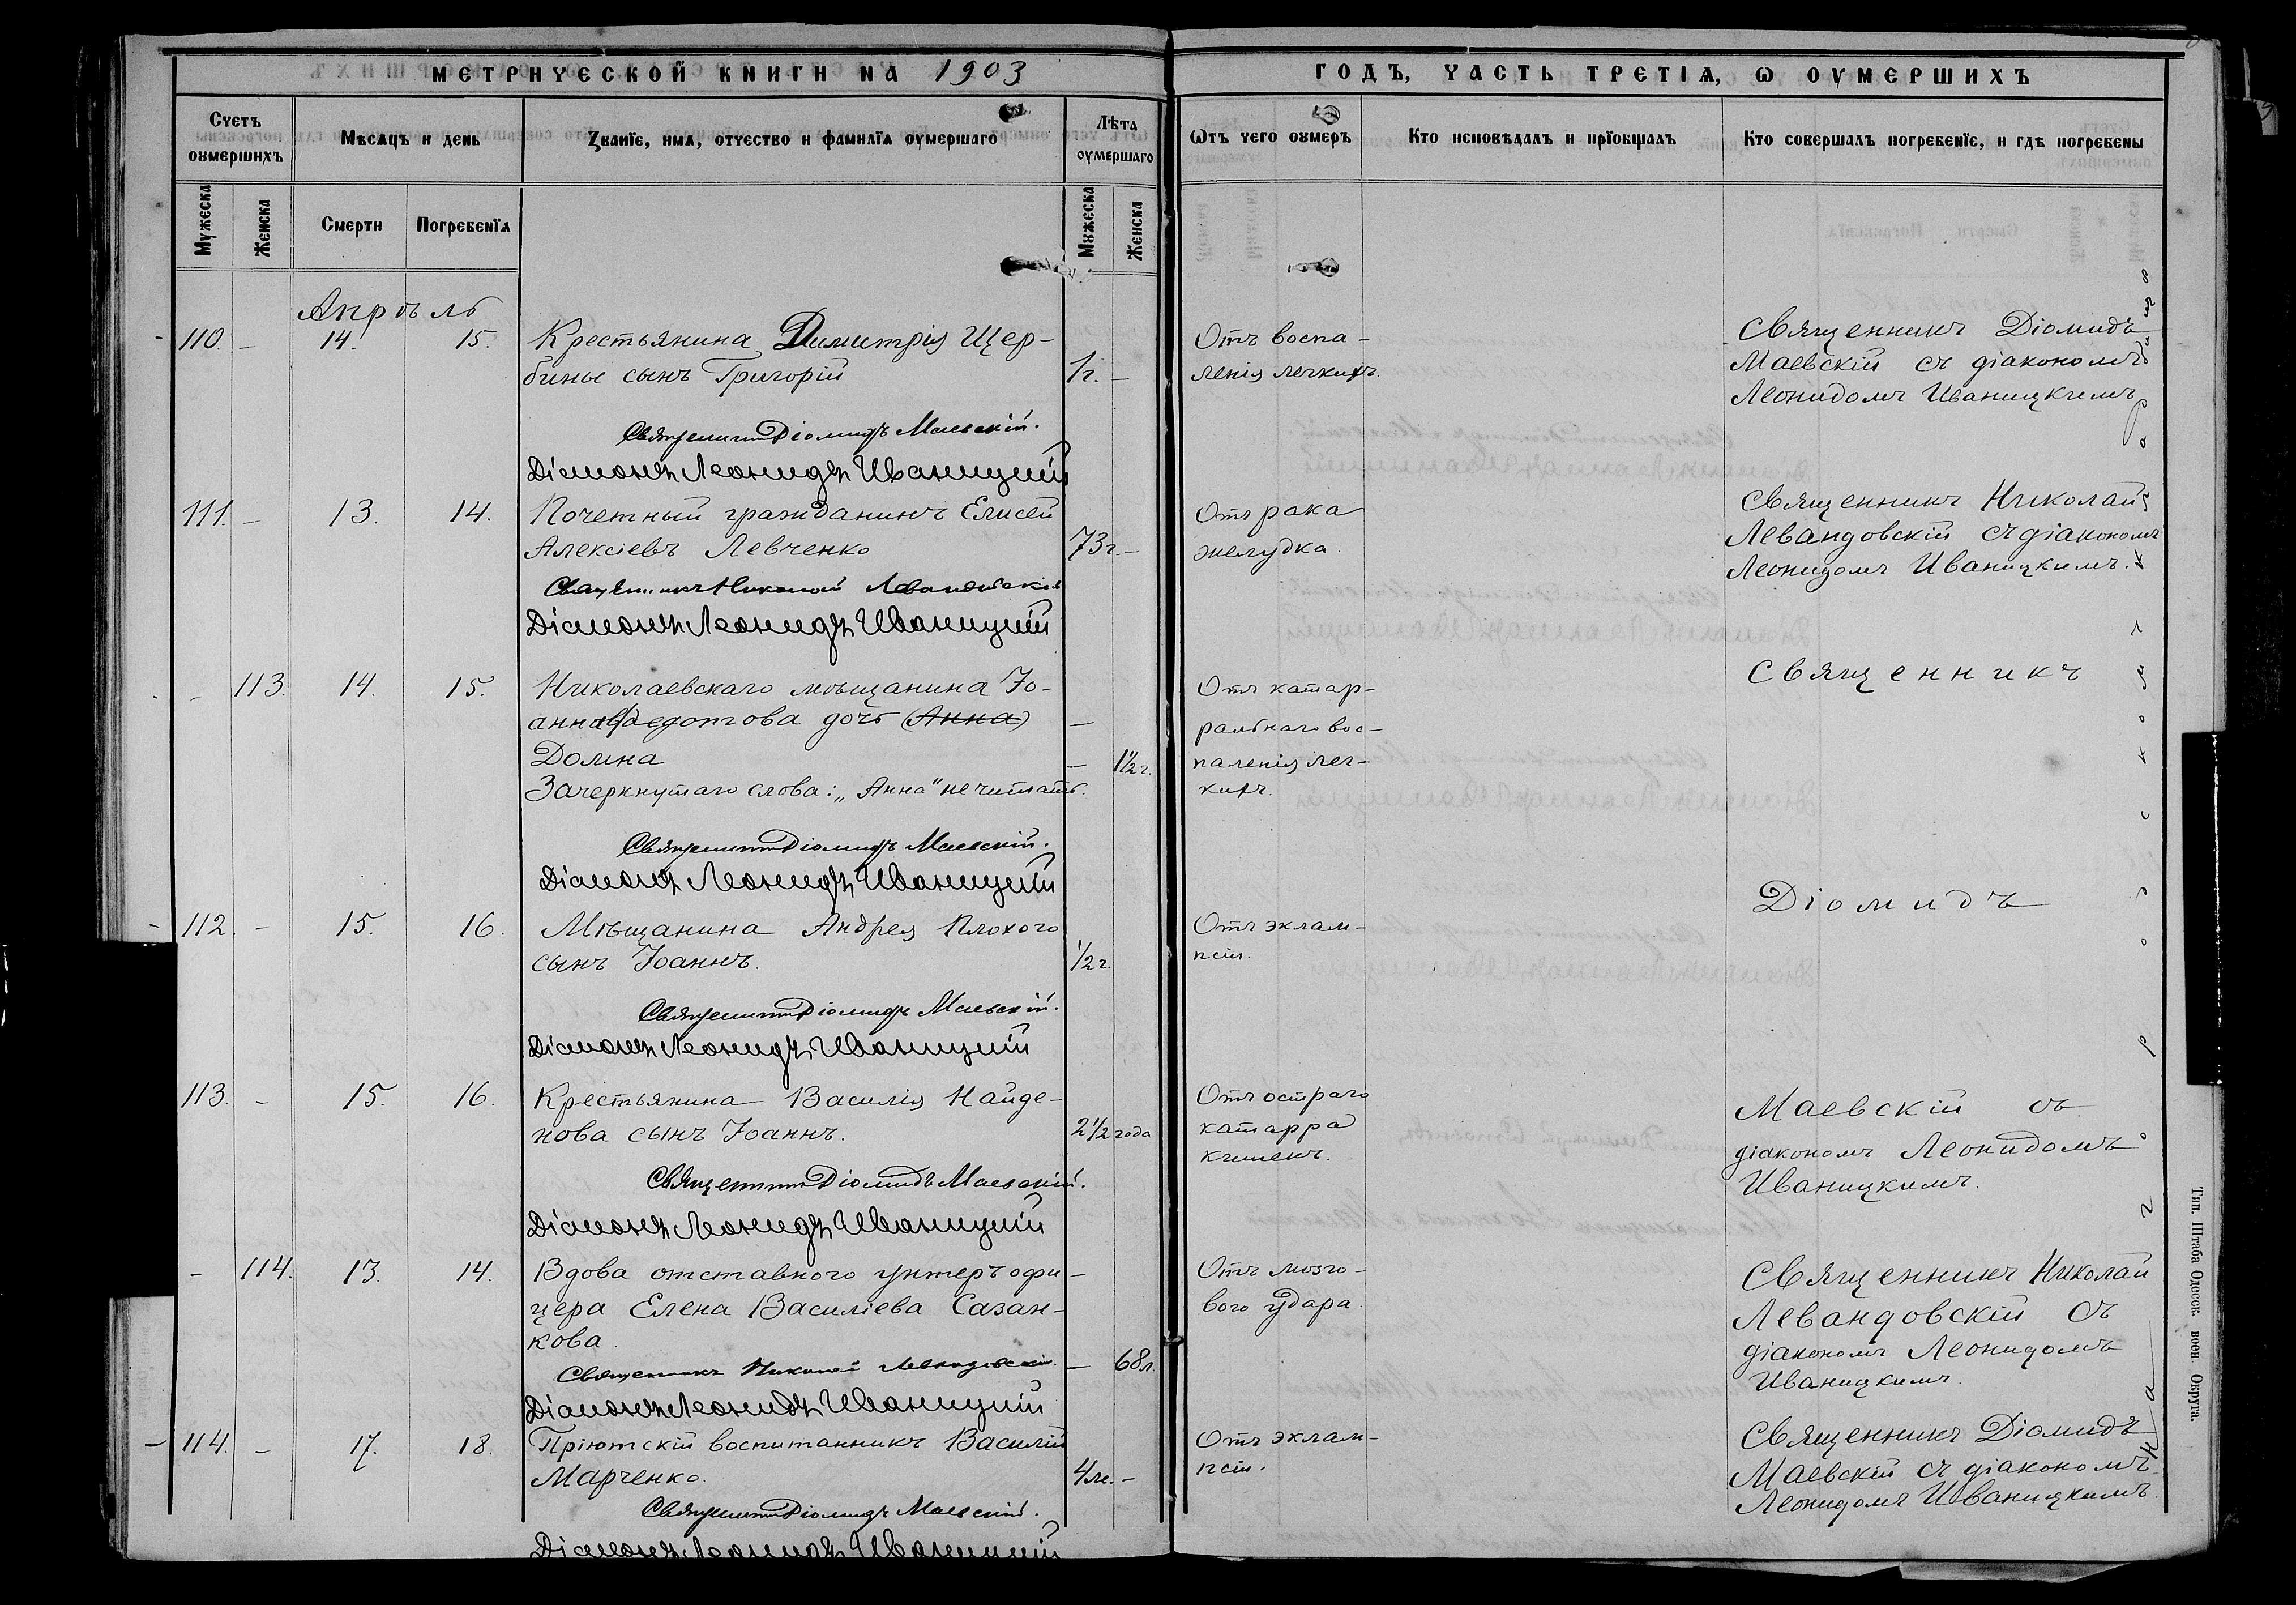 МЕТРИЧЕСКОЙ КНИГИ НА 1903
ГОДЪ, ЧАСТЬ ТРЕТІѦ, Ѡ ОУМЕРШИХЪ
Счетъ оумершихъ
Мѣсѧцъ и день
Званіе, имѧ, отчество и фамиліѧ оумершаго
Лѣта оумершаго
Ѿтъ чего оумеръ
Кто исповѣдалъ и пріобщалъ
Кто совершалъ погребеніе, и гдѣ погребены
Мужеска
Женска
Смерти
Погребеніѧ
Мужеска
Женска
Апрѣль
110. – 14. 15. Крестьянина Димитрія Щер-
бины сынъ Григорій 1г. –
Отъ воспа-
ленія легкихъ.
Священникъ Діомидъ
Маевскій съ діакономъ
Леонидомъ Иваницкимъ
Священникъ Діомидъ Маевскій.
Діаконъ Леонидъ Иваницкій
111. – 13. 14. Почетный гражданинъ Елисей
Алексіевъ Левченко 73г. –
Отъ рака
желудка.
Священникъ Николай
Левандовскій съ діакономъ
Леонидомъ Иваницкимъ.
Священникъ Николай Левандовскій
Діаконъ Леонидъ Иваницкій
– 113. 14. 15. Николаевскаго мѣщанина Іо-
анна Федотова дочь (Анна) –
Домна – 1½г.
Зачеркнутаго слова: „Анна" не читать.
Отъ катар-
ральнаго вос-
паленія лег-
кихъ.
Священникъ
Священникъ Діомидъ Маевскій.
Діаконъ Леонидъ Иваницкій
112. – 15. 16. Мѣщанина Андрея Плохого
сынъ Іоаннъ. ½г.
Отъ эклам-
псіи.
Діомидъ
Священникъ Діомидъ Маевскій.
Діаконъ Леонидъ Иваницкій
113. – 15. 16. Крестьянина Василія Найде-
нова сынъ Іоаннъ. 2½ года
Отъ остраго
катарра
кишекъ.
Маевскій съ
діакономъ Леонидомъ
Иваницкимъ.
Священникъ Діомидъ Маевскій.
Діаконъ Леонидъ Иваницкій
– 114. 13. 14. Вдова отставного унтеръ офи-
цера Елена Василіева Сазан-
кова. – 68л.
Отъ мозго-
вого удара.
Священникъ Николай
Левандовскій съ
діакономъ Леонидомъ
Иваницкимъ.
Священникъ Николай Левандовскій.
Діаконъ Леонидъ Иваницкій
114. – 17. 18. Пріютскій воспитанникъ Василій
Марченко. 4л. –
Отъ эклам-
псіи.
Священникъ Діомидъ
Маевскій съ діакономъ
Леонидомъ Иваницкимъ
Священникъ Діомидъ Маевскій.
Діаконъ Леонидъ Иваницкій
Тип. Штаба Одесск. воен Округа.